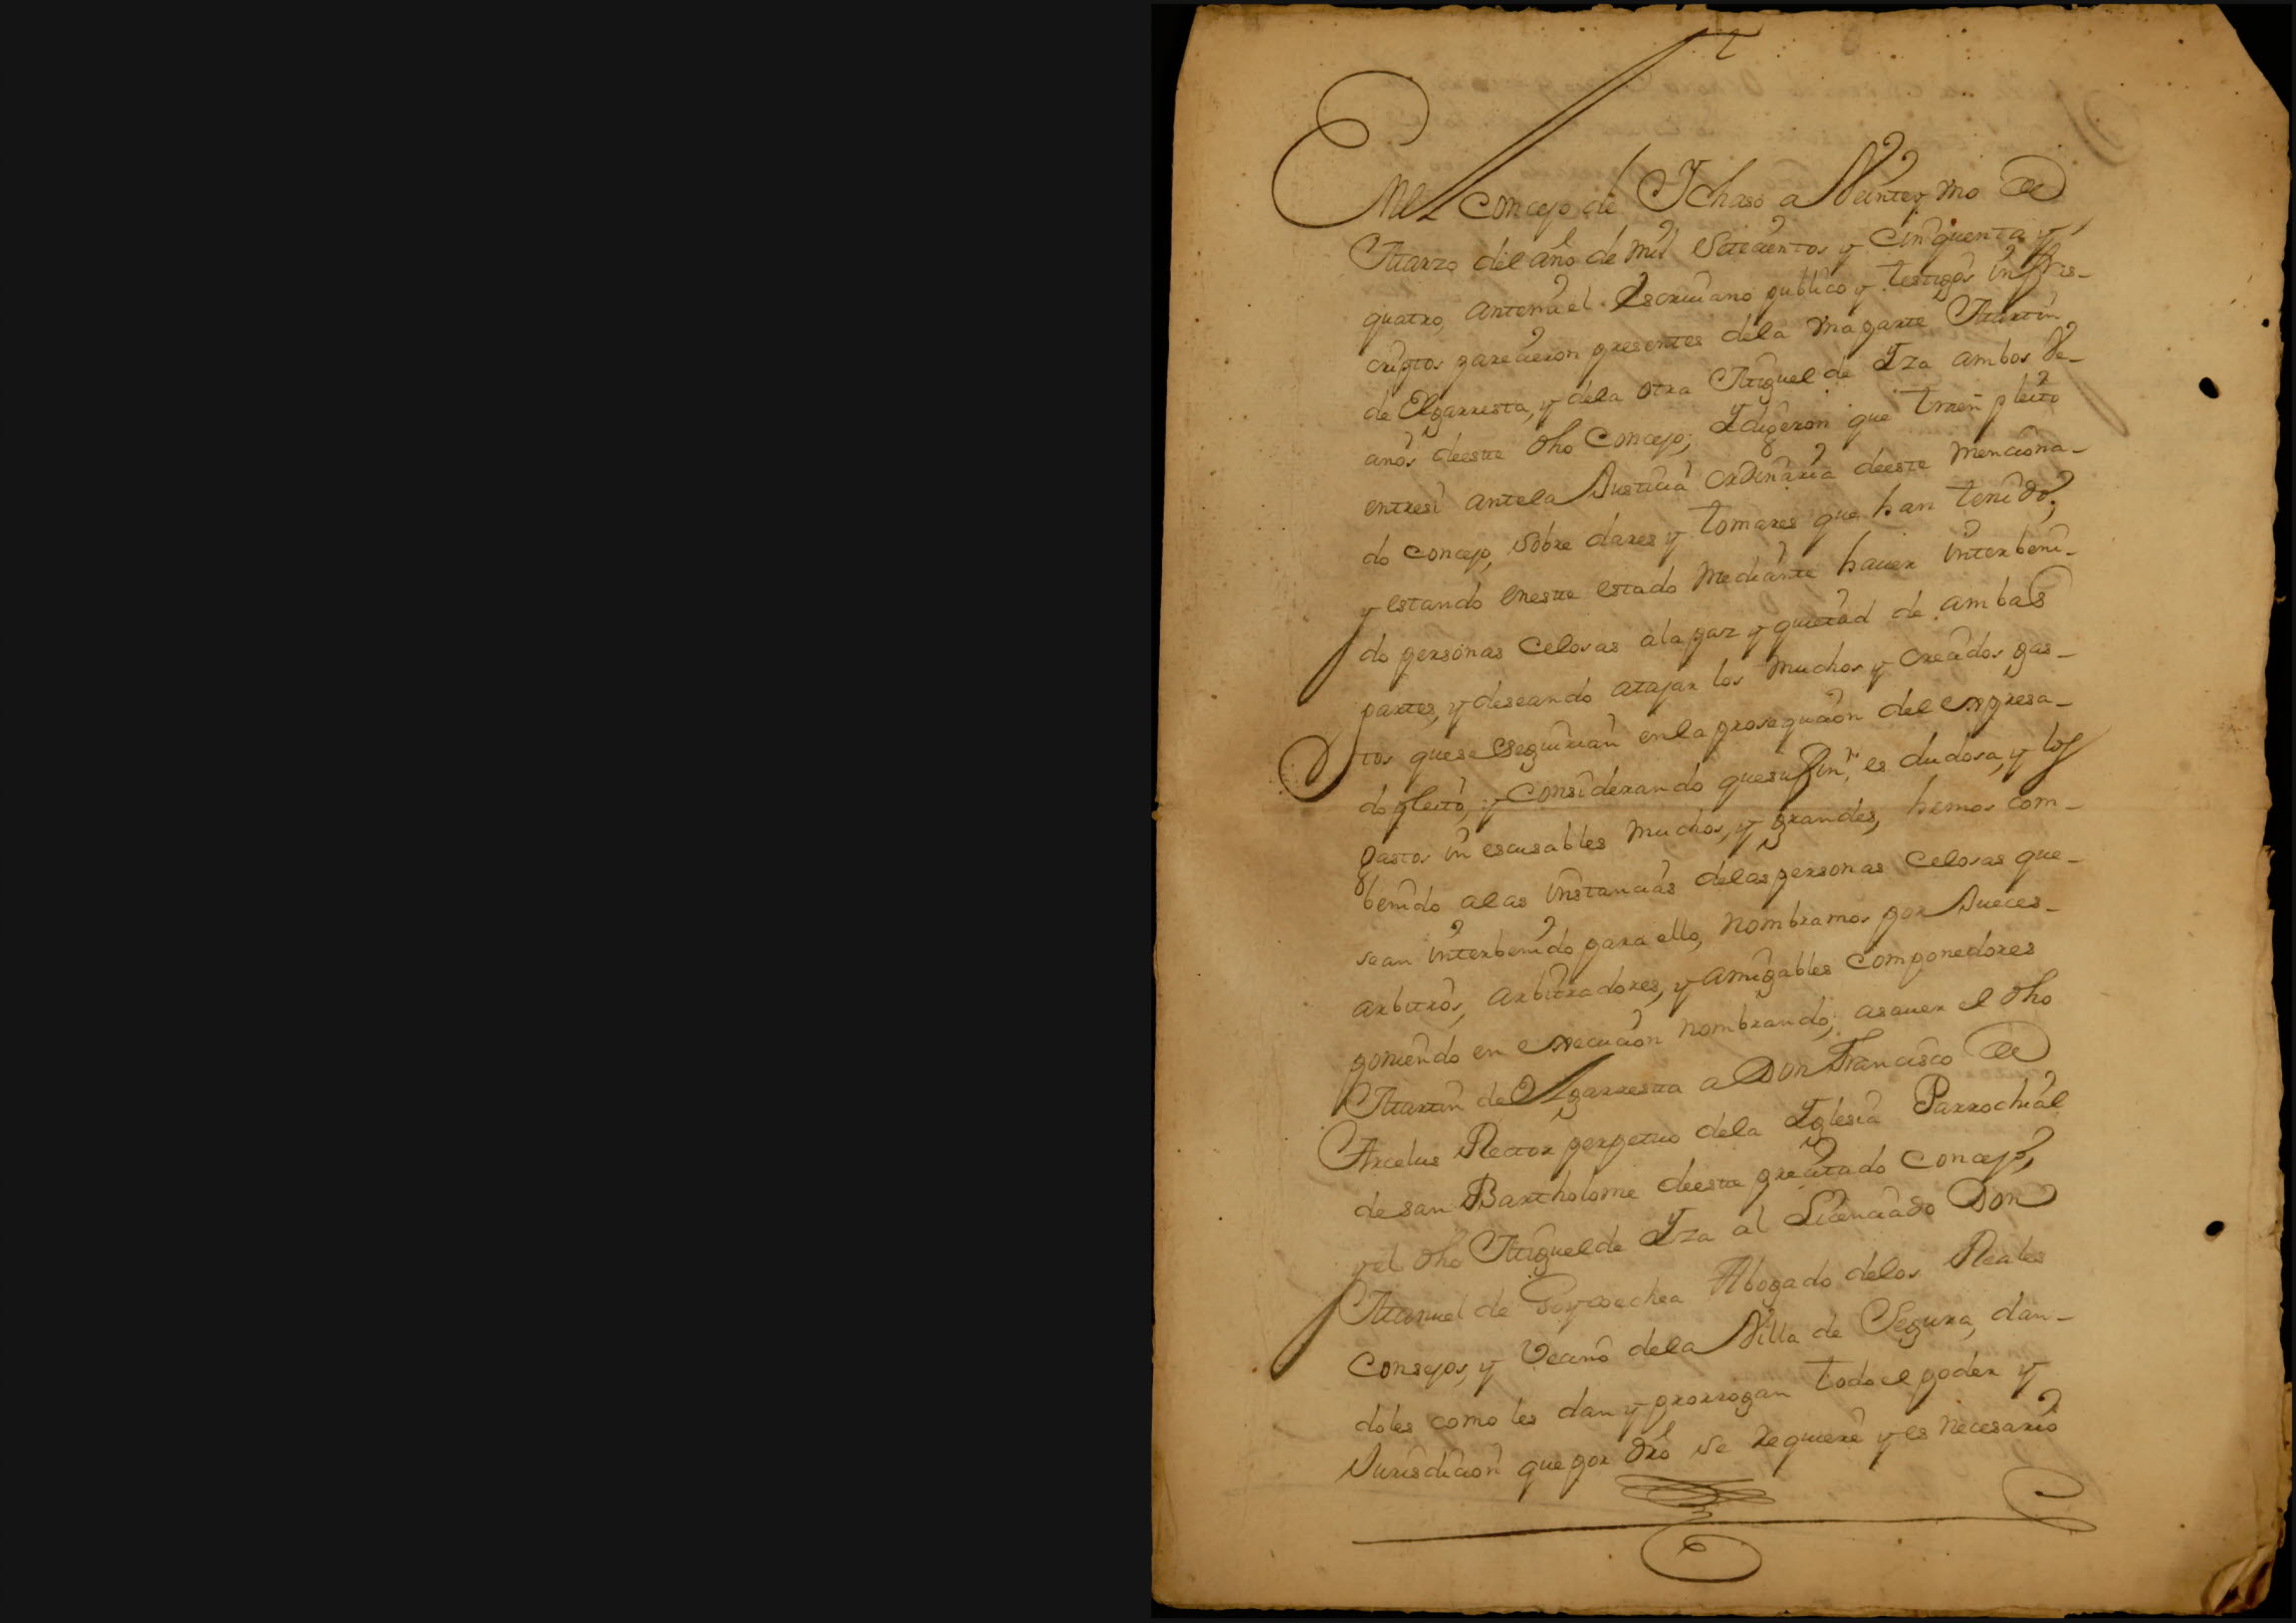 En el Concejo de Ichaso a Veinte y Uno de
Marzo del año de mil Setecientos y Cinquenta y
quatro, ante mi el Escriuano publico y testigos infras-
criptos parecieron presentes dela una parte Martin
de Elgarresta, y dela otra Miguel de Yza ambos Ve-
cinos deeste dho Concejo; Y digeron que traen pleito
entresi antela Justicia ordinaria deeste menciona-
do concejo, Sobre dares y tomares que han tenido;
y estando eneste estado Mediante hauer interbeni-
do personas Celosas ala paz y quietud de ambas
partes, y deseando atajar los muchos y crecidos gas-
tos quese Seguirian enla prosequcion del expresa-
do pleito, y Considerando quesu fin, es dudosa, y los
gastos in escusables muchos, y grandes, hemos com-
benido alas instancias delas personas Celosas que-
sean interbenido para ello, nombramos por Jueces-
arbitros, arbitradores, y amigables Componedores
poniendo en execucion nombrando; asauer el dho
Martin de Elgarresta a Don Francisco de
Arcelus Rector perpetuo dela Yglesia Parrochial
de san Bartholome deeste precitado Concejo,
y el dho Miguel de Yza al Licenciado Don
Manuel de Goycoechea Abogado delos Reales
Consejos, y Vecino dela Villa de Segura, dan-
doles como les dan y prorrogan todo el poder y
Jurisdicion que por dro Se requiere y es necesario